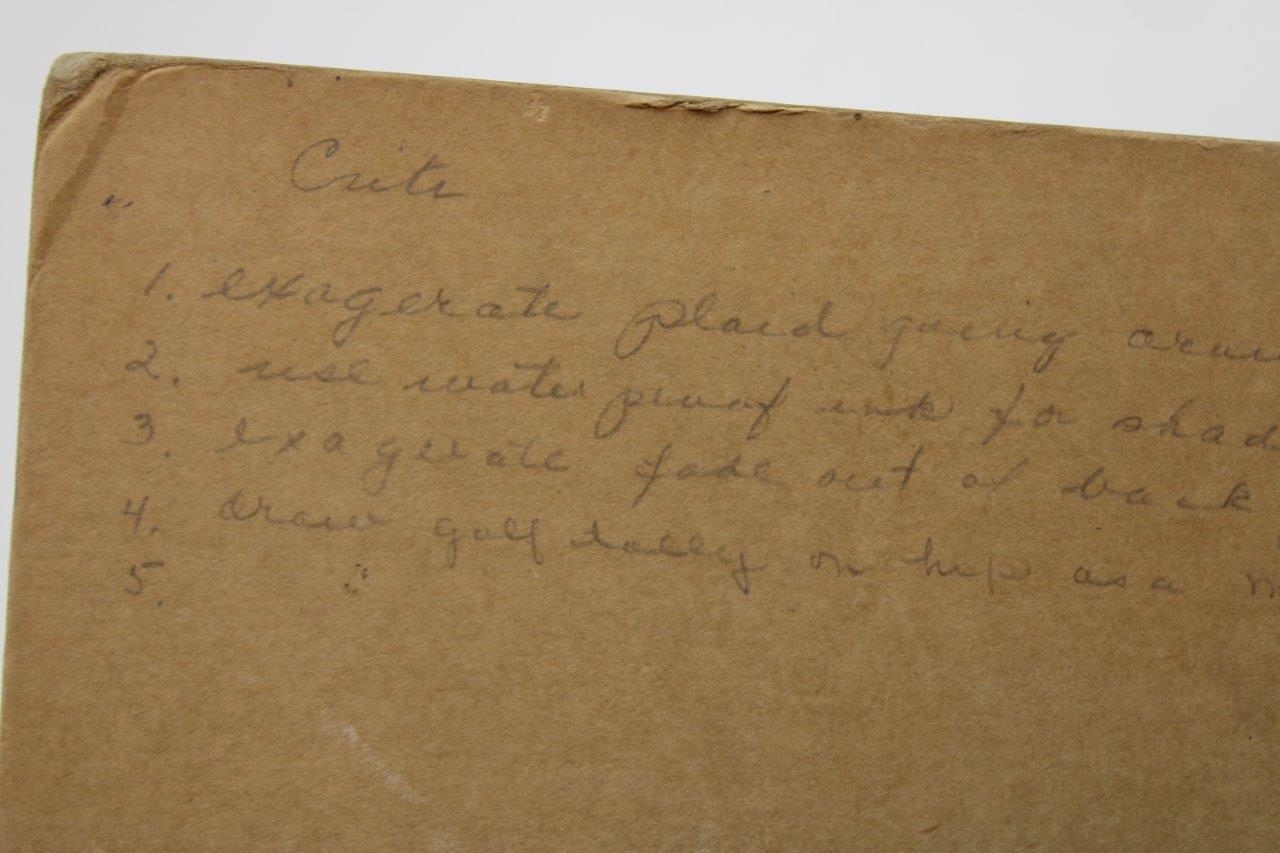 Crits
1. exagerate plaid going aroun
2. use water proof ink for shad
3. exagerate fade out of back
4. draw golf tally on hip as a
5.